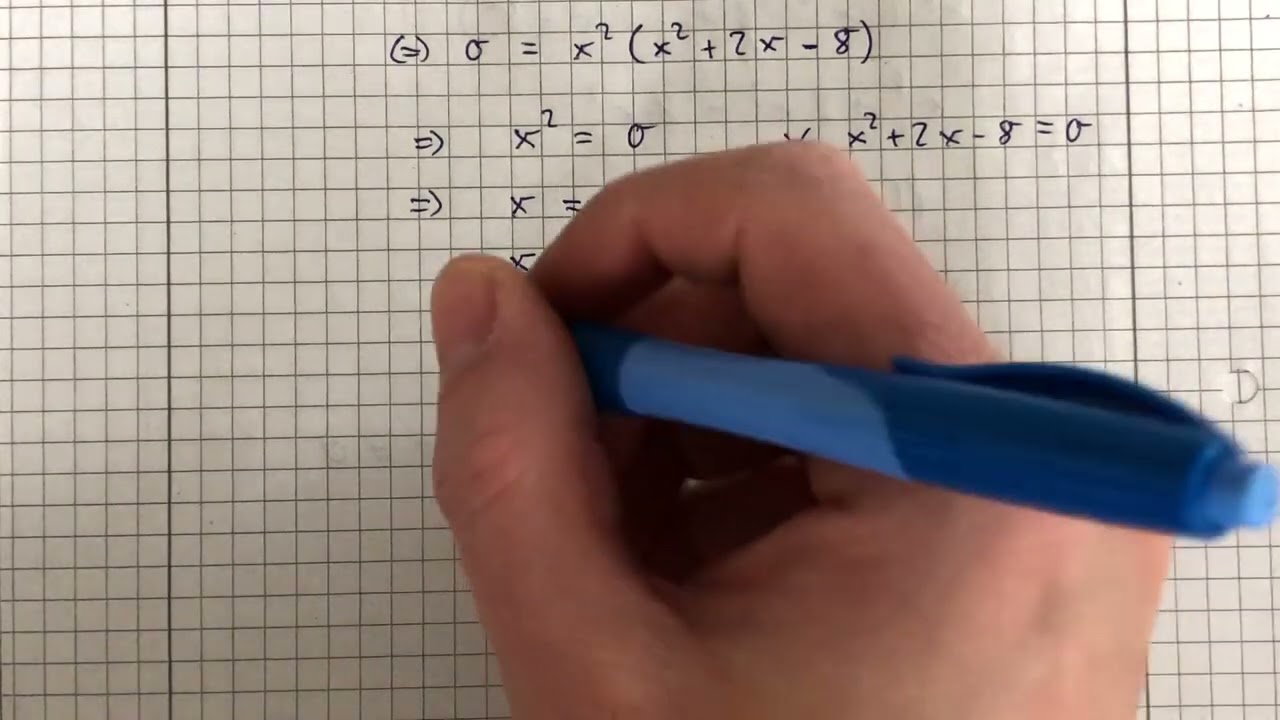 (=) 0 = x² (x² + 2x - 8)
=) x² = 0 ∨ x² + 2x - 8 = 0
=) x =
x
D